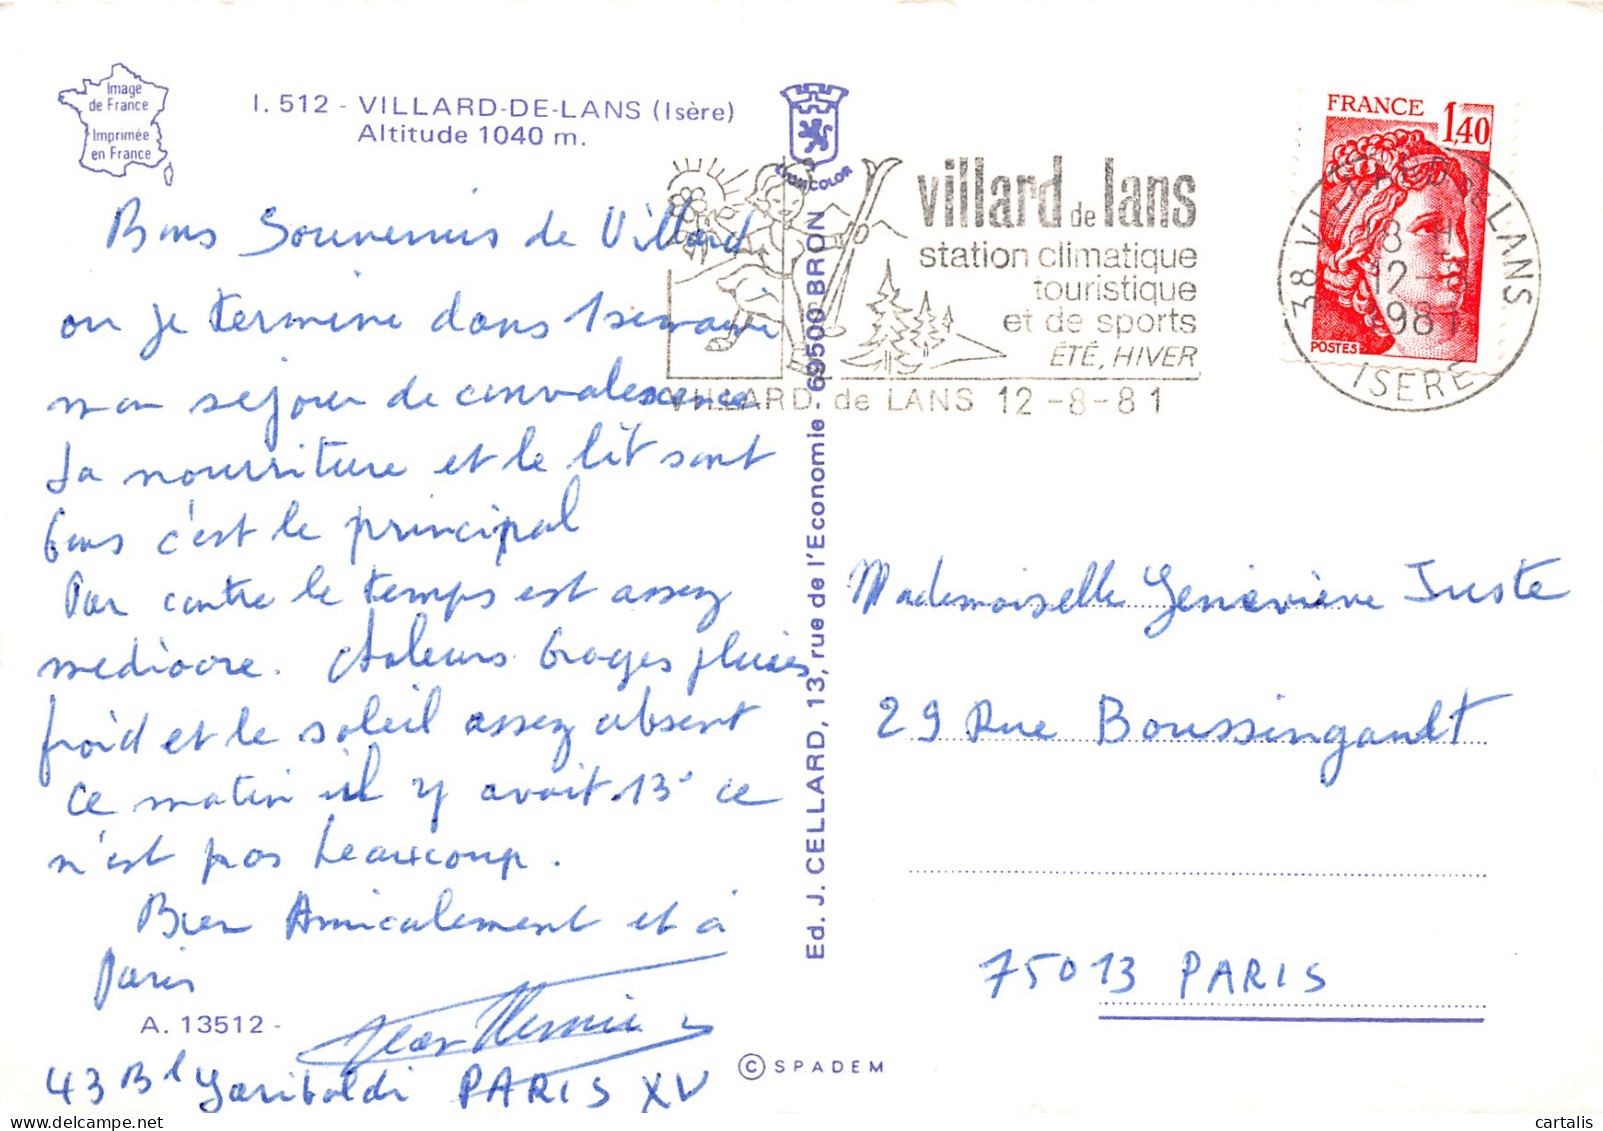 Image
de France
Imprimée
en France
I. 512 - VILLARD-DE-LANS (Isère)
Altitude 1040 m.
LYON COLOR
Bons Souvenirs de Villard
ou je termine dans 1 semaine
mon sejour de convalescence
La nourriture et le lit sont
bons c'est le principal
Par contre le temps est assez
mediocre. Chaleurs Orages pluies
froid et le soleil assez absent
ce matin il y avait 13° ce
n'est pas beaucoup.
Bien Amicalement et à
Paris
A. 13512 -
Jean
43 Bd Garibaldi PARIS XV
Ed. J. CELLARD, 13, rue de l'Economie - 69500 BRON
villard de lans
station climatique
touristique
et de sports
ÉTÉ, HIVER
VILLARD de LANS 12-8-81
FRANCE 1,40
POSTES
38 VILLARD DE LANS
18 H
12-8
1981
ISERE
Mademoiselle Geneviève Juste
29 Rue Boussingault
75013 PARIS
© SPADEM
cartalis
www.delcampe.net